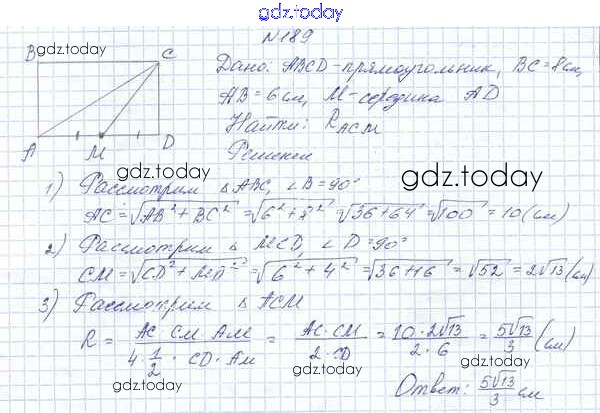 gdz.today
№189
B C
gdz.today
Дано: ABCD - прямоугольник, BC = 8 см,
AB = 6 см, M - середина AD
Найти: R_ACM
A M D
Решение
gdz.today
gdz.today
1) Рассмотрим △ ABC, ∠B = 90°
AC = √(AB² + BC²) = √(6² + 8²) √(36+64) = √100 = 10 (см)
2) Рассмотрим △ MCD, ∠D = 90°
CM = √(CD² + MD²) = √(6² + 4²) = √(36+16) = √52 = 2√13 (см)
3) Рассмотрим △ ACM
R = (AC · CM · AM)/(4 · 1/2 · CD · AM) = (AC · CM)/(2 · CD) = (10 · 2√13)/(2 · 6) = 5√13/3 (см)
gdz.today
gdz.today
gdz.today
Ответ: 5√13/3 см
gdz.today